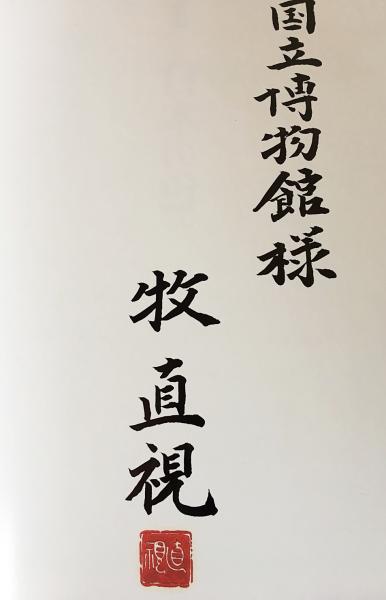 国立博物館様
牧直視
直視